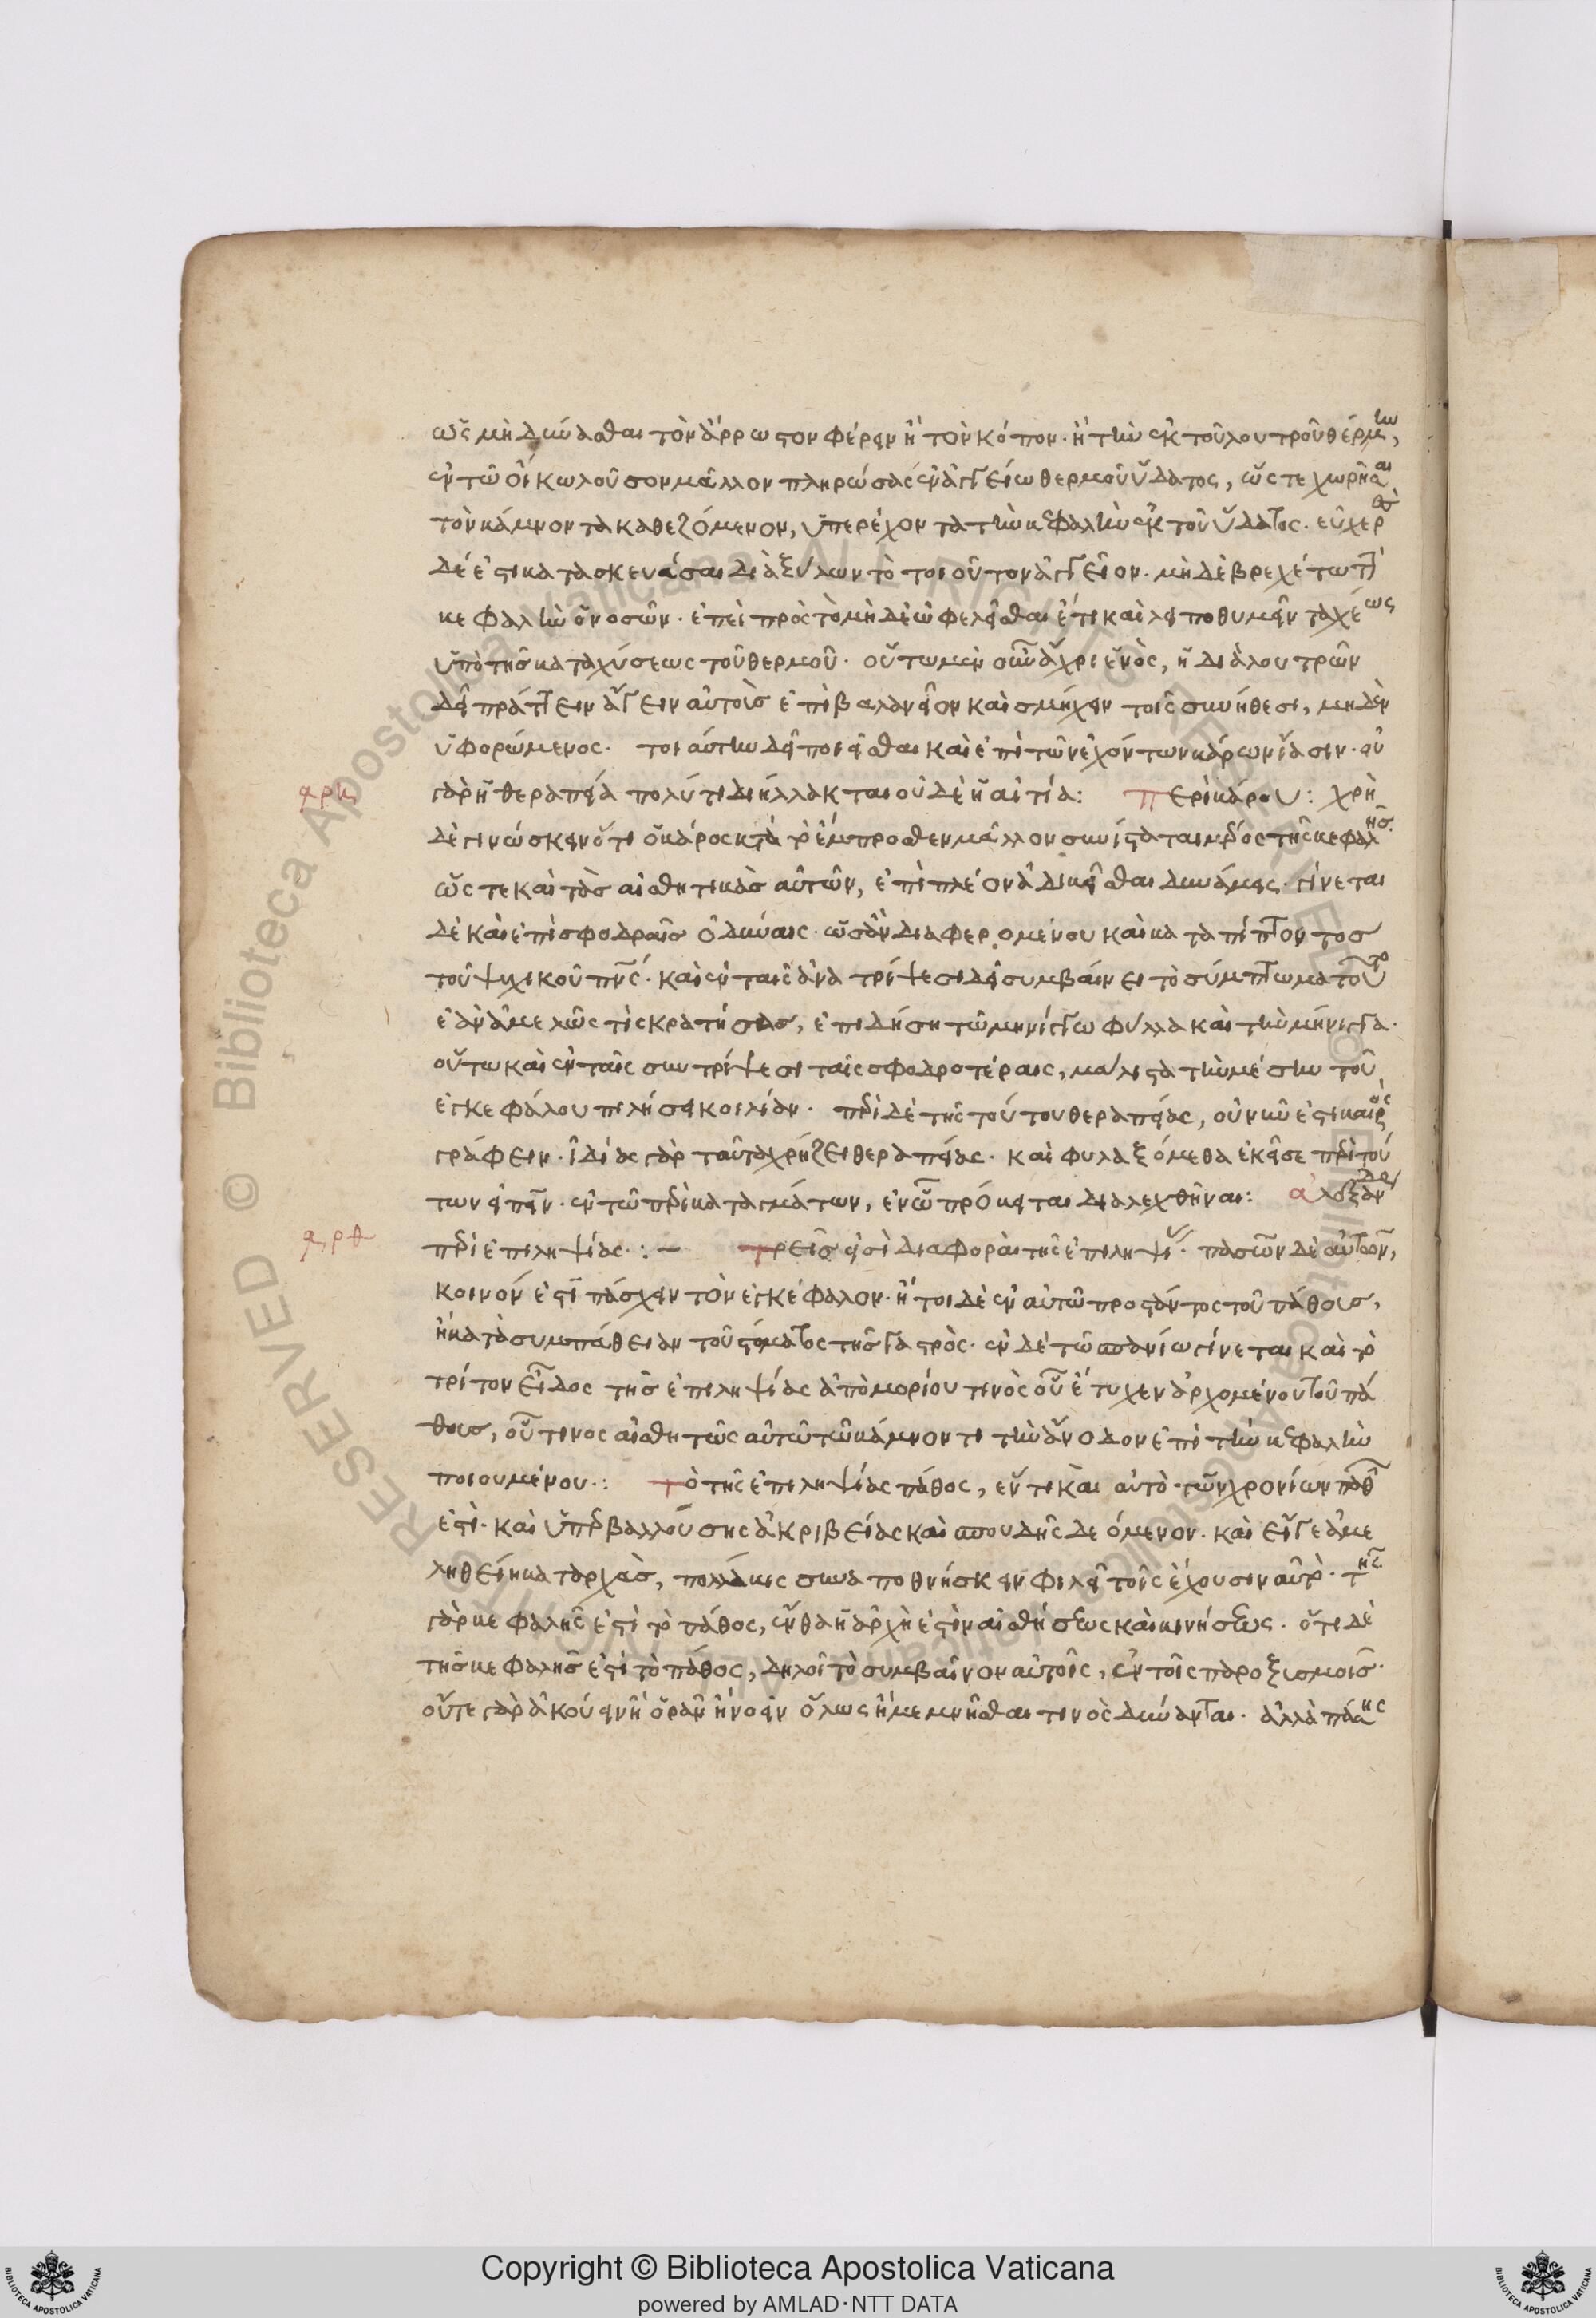 ὡς μὴ δύνασθαι τὸν ἄρρωστον φέρειν ἢ τὸν κόπον· ἢ τὴν ἐκ τοῦ λουτροῦ θέρμην,
ἐν τῷ οἴκῳ λοῦσον μᾶλλον πληρώσας ἐν ἀγγείῳ θερμοῦ ὕδατος, ὥστε χωρῆσαι
τὸν κάμνοντα καθεζόμενον, ὑπερέχοντα τὴν κεφαλὴν ἐκ τοῦ ὕδατος. εὐχερὲς
δέ ἐστι κατασκευάσαι διὰ ξύλων τὸ τοιοῦτον ἀγγεῖον. μὴ δὲ βρεχέτω τὴν
κεφαλὴν ὁ νοσῶν. ἐπεὶ πρὸς τὸ μὴ δὲ ὠφελεῖσθαι ἔτι καὶ λειποθυμεῖν ταχέως
ὑπὸ τῆς καταχύσεως τοῦ θερμοῦ. οὕτω μὲν οὖν ἄχρι ἑνὸς, ἢ διὰ λουτρῶν
δεῖ πράττειν ἄγειν αὐτοὺς ἐπὶ βαλανεῖον καὶ σμήχειν τοῖς συνήθεσι, μηδὲν
ὑφορώμενος. τοιαύτην δεῖ ποιεῖσθαι καὶ ἐπὶ τῶν ἐχόντων κάρων ἴασιν. οὐ
γὰρ ἡ θεραπεία πολύ τι διήλλακται οὐδὲ ἡ αἰτία: Περὶ κάρου: χρὴ
δὲ γινώσκειν ὅτι ὁ κάρος κατὰ τὸ ἔμπροσθεν μᾶλλον συνίσταται μέρος τῆς κεφαλῆς.
ὥστε καὶ τὰς αἰσθητικὰς αὐτῶν, ἐπὶ πλέον ἀδικεῖσθαι δυνάμεις. γίνεται
δὲ καὶ ἐπὶ σφοδραῖς ὀδύναις. ὡσὰν διαφερομένου καὶ καταπίπτοντος
τοῦ ψυχικοῦ πνς. καὶ ἐν ταῖς ἀνατρίψεσι δεῖ συμβαίνει τὸ σύμπτωμα τοῦτο
ἐὰν ἀμελῶς τις κρατήσας, ἐπιδήσῃ τῷ μηνίγγῳ φύλλα καὶ τὴν μήνιγγα.
οὕτω καὶ ἐν ταῖς συντρίψεσι ταῖς σφοδροτέραις, μάλιστα τὴν μέσην τοῦ
ἐγκεφάλου πιλήσει κοιλίαν. περὶ δὲ τῆς τούτου θεραπείας, οὐ νῦν ἐστι καιρὸς
γράφειν. ἰδίας γὰρ ταῦτα χρήζει θεραπείας. καὶ φυλαξόμεθα ἐκεῖσε περὶ τού
των εἰπεῖν. ἐν τῷ περὶ καταγμάτων, ἐν ᾧ πρόκειται διαλεχθῆναι: ἀλεξάνδρου
περὶ ἐπιληψίας.:– τρεῖς εἰσὶ διαφοραὶ τῆς ἐπιληψίας. πασῶν δὲ αὐτῶν,
κοινόν ἐστι πάσχειν τὸν ἐγκέφαλον. ἤτοι δὲ ἐν αὐτῷ προστάντος τοῦ πάθους,
ἢ κατὰ συμπάθειαν τοῦ στόματος τῆς γαστρὸς. ἐν δὲ τῷ σπανίῳ γίνεται καὶ τὸ
τρίτον εἶδος τῆς ἐπιληψίας ἀπὸ μορίου τινὸς οὗ ἔτυχεν ἀρχομένου τοῦ πά
θους, οὗτινος αἰσθητῶς αὐτῷ τῷ κάμνοντι τὴν ἄνοδον ἐπὶ τὴν κεφαλὴν
ποιουμένου.: τὸ τῆς ἐπιληψίας πάθος, ἕν τι καὶ αὐτὸ τῶν χρονίων παθῶν
ἐστὶ. καὶ ὑπερβαλλούσης ἀκριβείας καὶ σπουδῆς δεόμενον. καὶ εἴγε ἀμε
ληθείη κατ᾽ ἀρχὰς, πολλάκις συναποθνήσκειν φιλεῖ τοῖς ἔχουσιν αὐτὸ. τῆς
γὰρ κεφαλῆς ἐστὶ τὸ πάθος, ἔνθα ἡ ἀρχὴ ἐστὶν αἰσθήσεως καὶ κινήσεως. ὅτι δὲ
τῆς κεφαλῆς ἐστὶ τὸ πάθος, δηλοῖ τὸ συμβαῖνον αὐτοῖς, ἐν τοῖς παροξυσμοῖς.
οὔτε γὰρ ἀκούειν ἢ ὁρᾶν ἢ νοεῖν ὅλως ἢ μεμνῆσθαι τινὸς δύνανται. ἀλλὰ πάσης